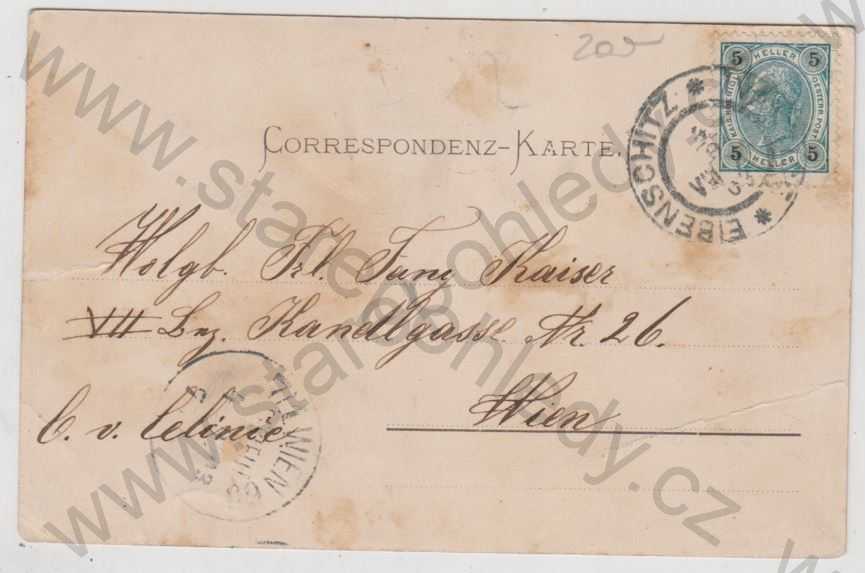 20
5 HELLER 5
5 HELLER 5
OESTERR. POST
EIBENSCHITZ
CORRESPONDENZ-KARTE.
Wolgb. Frl. Fany Kaiser
VII Bez. Kandlgasse Nr. 26.
Wien
C. v.
WIEN
www.stare-pohledy.cz